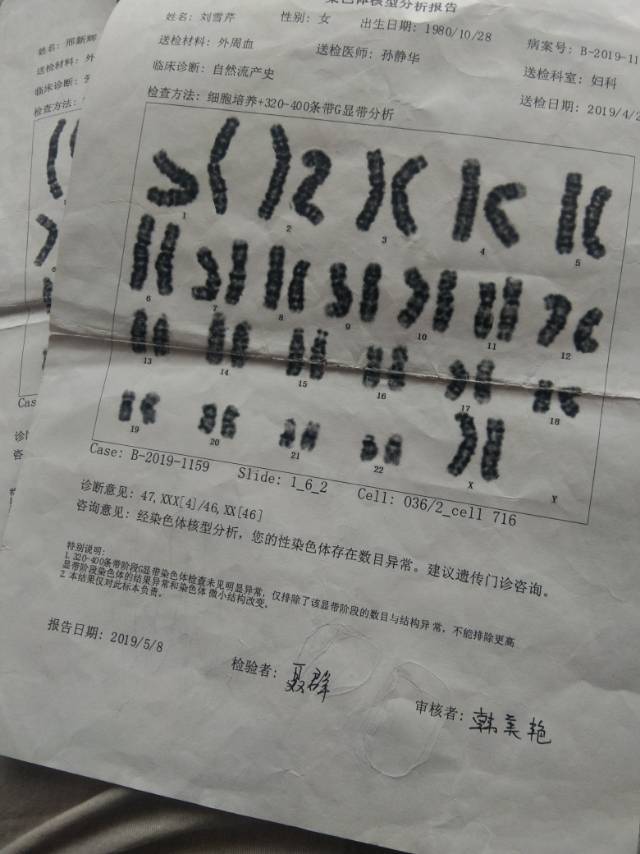 染色体核型分析报告
姓名: 刘雪芹 性别: 女 出生日期: 1980/10/28 病案号: B-2019-11
送检材料: 外周血 送检医师: 孙静华 送检科室: 妇科
临床诊断: 自然流产史 送检日期: 2019/4/2
检查方法: 细胞培养+320-400条带G显带分析
1 2 3 4 5
6 7 8 9 10 11 12
13 14 15 16 17 18
19 20 21 22 X Y
Case: B-2019-1159 Slide: 1_6_2 Cell: 036/2_cell 716
诊断意见: 47,XXX[4]/46,XX[46]
咨询意见: 经染色体核型分析，您的性染色体存在数目异常。建议遗传门诊咨询。
特别说明:
1. 320-400条带阶段G显带染色体检查未见明显异常，仅排除了该显带阶段的数目与结构异常，不能排除更高
显带阶段染色体的结果异常和染色体 微小结构改变。
2. 本结果仅对此标本负责。
报告日期: 2019/5/8
检验者: 聂群
审核者: 韩美艳
姓名:
送检材料: 外
临床诊断:
检查方法:
Cas